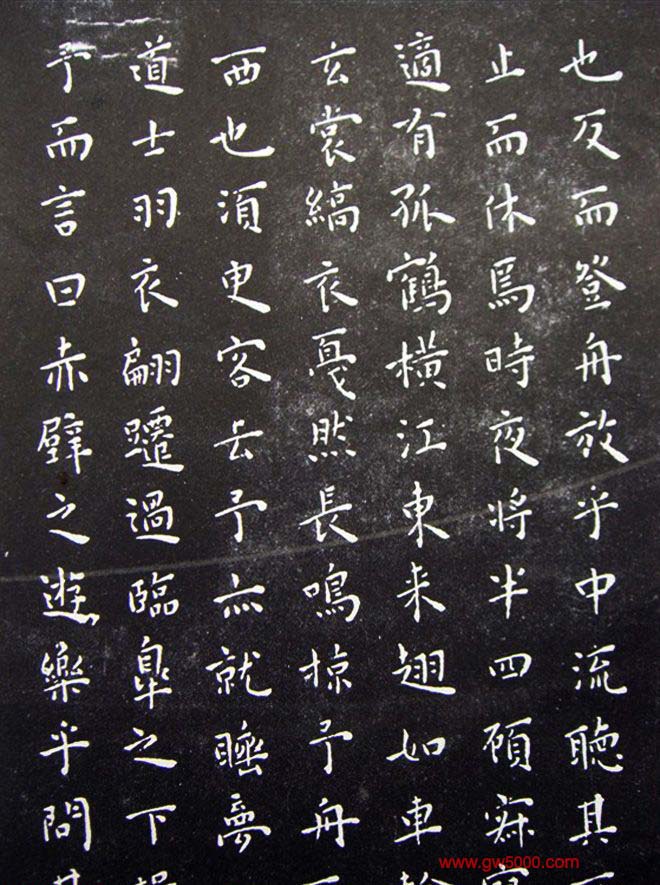 也反而登舟放乎中流聽其
止而休焉時夜将半四顧寂
適有孤鶴横江東来翅如車
玄裳縞衣戛然長鳴掠予舟
西也須臾客去予亦就睡夢
道士羽衣翩躚過臨皐之下
予而言曰赤壁之遊樂乎問
www.gw5000.com